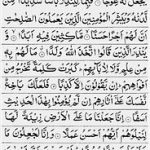 يَجْعَل لَّهُ عِوَجًا ۜ قَيِّمًا لِّيُنذِرَ بَأْسًا شَدِيدًا مِّن
لَّدُنْهُ وَيُبَشِّرَ الْمُؤْمِنِينَ الَّذِينَ يَعْمَلُونَ الصَّٰلِحَٰتِ
وَيُنذِرَ الَّذِينَ قَالُوا اتَّخَذَ اللَّهُ وَلَدًا مَّا لَهُم بِهِ
مِنْ عِلْمٍ وَلَا لِءَابَآئِهِمْ كَبُرَتْ كَلِمَةً تَخْرُجُ مِنْ
أَفْوَٰهِهِمْ إِن يَقُولُونَ إِلَّا كَذِبًا فَلَعَلَّكَ بَٰخِعٌ
نَّفْسَكَ عَلَىٰٓ ءَاثَٰرِهِمْ إِن لَّمْ يُؤْمِنُوا بِهَٰذَا الْحَدِيثِ
أَسَفًا إِنَّا جَعَلْنَا مَا عَلَى الْأَرْضِ زِينَةً لَّهَا
لِنَبْلُوَهُمْ أَيُّهُمْ أَحْسَنُ عَمَلًا وَإِنَّا لَجَٰعِلُونَ مَا